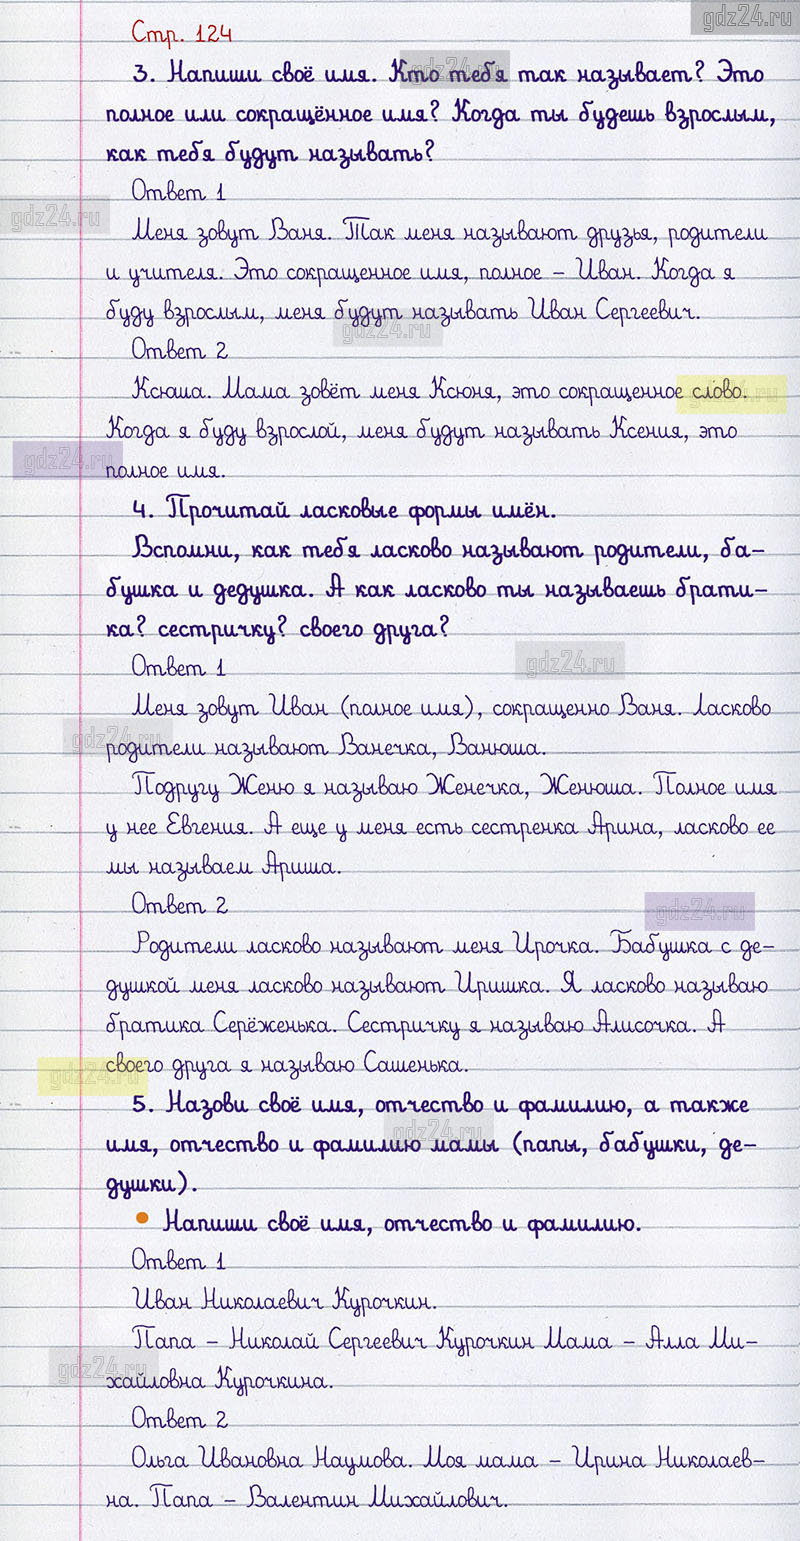 gdz24.ru
Стр. 124
3. Напиши своё имя. Кто тебя так называет? Это
полное или сокращённое имя? Когда ты будешь взрослым,
как тебя будут называть?
Ответ 1
Меня зовут Ваня. Так меня называют друзья, родители
и учителя. Это сокращенное имя, полное – Иван. Когда я
буду взрослым, меня будут называть Иван Сергеевич.
Ответ 2
Ксюша. Мама зовёт меня Ксюня, это сокращенное слово.
Когда я буду взрослой, меня будут называть Ксения, это
полное имя.
4. Прочитай ласковые формы имён.
Вспомни, как тебя ласково называют родители, ба-
бушка и дедушка. А как ласково ты называешь брати-
ка? сестричку? своего друга?
Ответ 1
Меня зовут Иван (полное имя), сокращенно Ваня. Ласково
родители называют Ванечка, Ванюша.
Подругу Женю я называю Женечка, Женюша. Полное имя
у нее Евгения. А еще у меня есть сестренка Арина, ласково ее
мы называем Ариша.
Ответ 2
Родители ласково называют меня Ирочка. Бабушка с де-
душкой меня ласково называют Иришка. Я ласково называю
братика Серёженька. Сестричку я называю Алисочка. А
своего друга я называю Сашенька.
5. Назови своё имя, отчество и фамилию, а также
имя, отчество и фамилию мамы (папы, бабушки, де-
душки).
• Напиши своё имя, отчество и фамилию.
Ответ 1
Иван Николаевич Курочкин.
Папа – Николай Сергеевич Курочкин Мама – Алла Ми-
хайловна Курочкина.
Ответ 2
Ольга Ивановна Наумова. Моя мама – Ирина Николаев-
на. Папа – Валентин Михайлович.